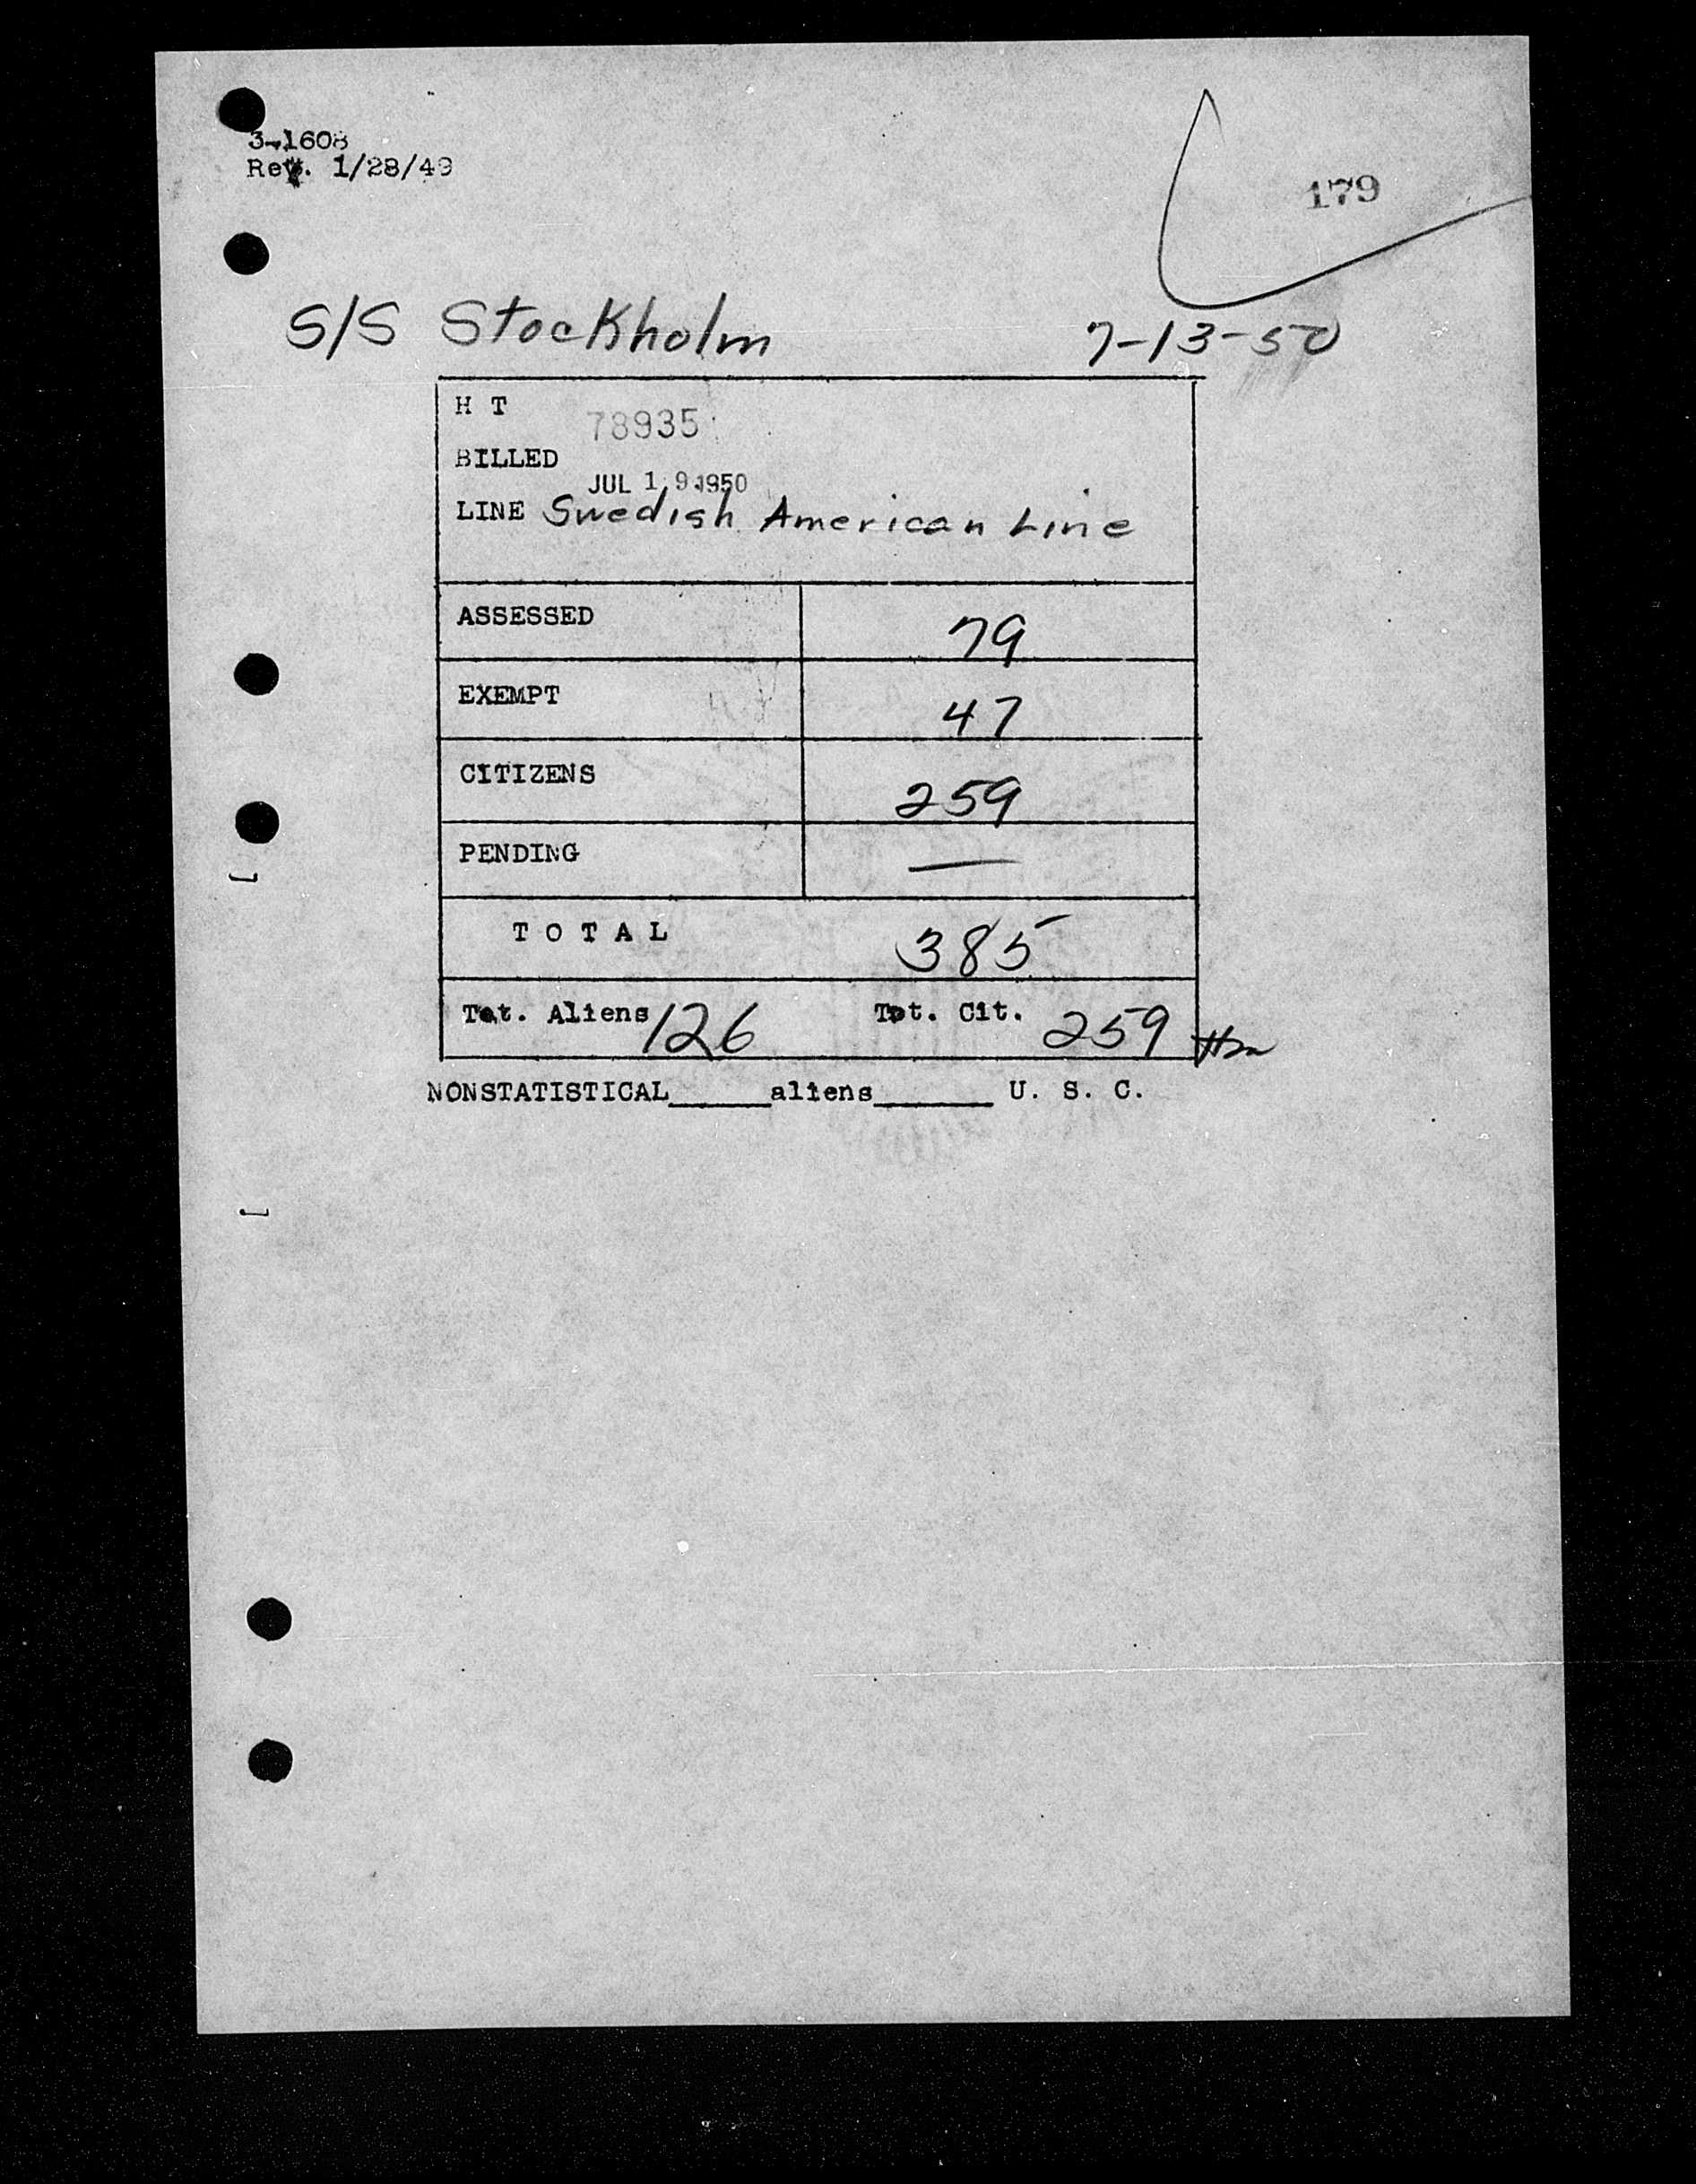 3-1608
Rev. 1/28/49
179
S/S Stockholm 7-13-50
H T 78935
BILLED
JUL 19 1950
LINE Swedish American Line
ASSESSED 79
EXEMPT 47
CITIZENS 259
PENDING —
T O T A L 385
Tot. Aliens 126 Tot. Cit. 259
NONSTATISTICAL______aliens_______ U. S. C.